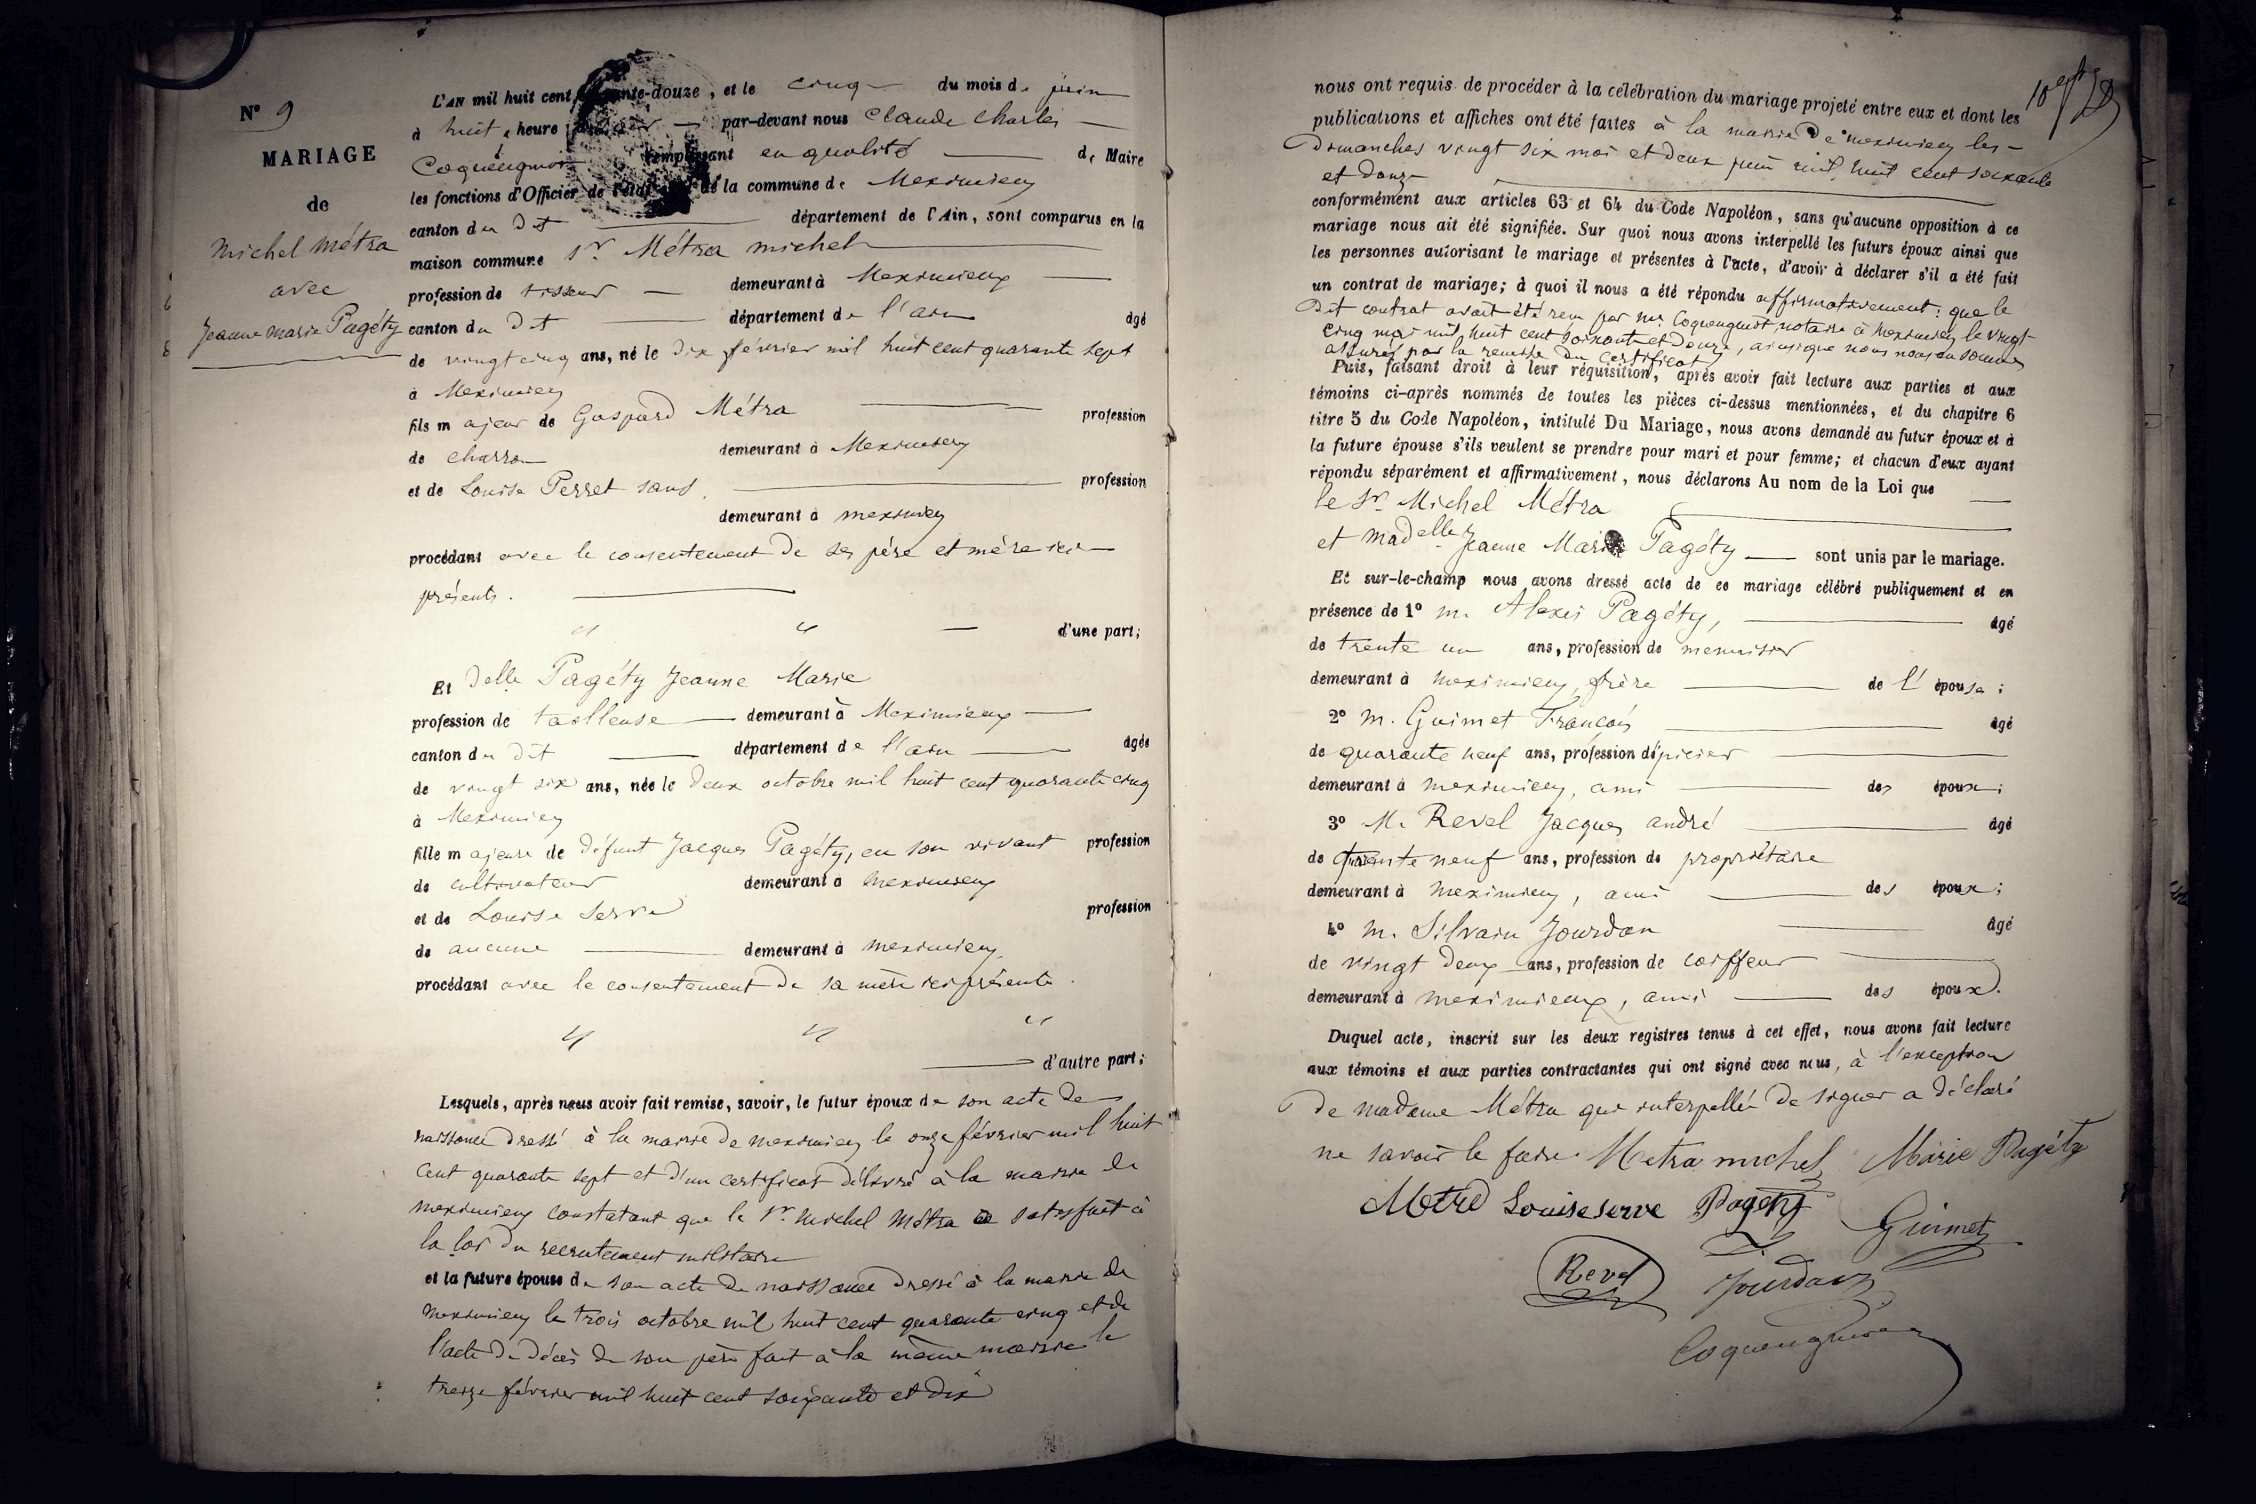 N° 9
MARIAGE
de
Michel Métra
avec
Jeanne Marie Pagéty
L'AN mil huit cent soixante-douze, et le cinq du mois de juin
à huit heures par-devant nous Claude Charles
Coquengniot remplissant en qualité de Maire
les fonctions d'Officier de l'état civil de la commune de Meximieux
canton du dit département de l'Ain, sont comparus en la
maison commune Sr. Métra Michel
profession de tisseur demeurant à Meximieux
canton du dit département de l'ain âgé
de vingt cinq ans, né le dix février mil huit cent quarante sept
à Meximieux
fils majeur de Gaspard Métra profession
de charron demeurant à Meximieux
et de Louise Perret sans profession
demeurant à meximieux
procédant avec le consentement de ses père et mère ici
présents.
" " d'une part;
Et Delle Pagéty Jeanne Marie
profession de tailleuse demeurant à Meximieux
canton du dit département de l'ain âgée
de vingt six ans, née le deux octobre mil huit cent quarante cinq
à Meximieux
fille majeure de défunt Jacques Pagéty, en son vivant profession
de cultivateur demeurant à meximieux
et de Louise Serve profession
de aucune demeurant à meximieux
procédant avec le consentement de sa mère ici présente.
" " "
d'autre part;
Lesquels, après nous avoir fait remise, savoir, le futur époux de son acte de
naissance dressé à la mairie de meximieux le onze février mil huit
cent quarante sept et d'un certificat délivré à la mairie de
meximieux constatant que le Sr. Michel Métra a satisfait à
la loi du recrutement militaire
et la future épouse de son acte de naissance dressé à la mairie de
meximieux le trois octobre mil huit cent quarante cinq et de
l'acte de décès de son père fait à la même mairie le
treize février mil huit cent soixante et dix
nous ont requis de procéder à la célébration du mariage projeté entre eux et dont les
publications et affiches ont été faites à la mairie de meximieux les
dimanches vingt six mai et deux juin mil huit cent soixante
et douze
conformément aux articles 63 et 64 du Code Napoléon, sans qu'aucune opposition à ce
mariage nous ait été signifiée. Sur quoi nous avons interpellé les futurs époux ainsi que
les personnes autorisant le mariage et présentes à l'acte, d'avoir à déclarer s'il a été fait
un contrat de mariage; à quoi il nous a été répondu affirmativement: que le
dit contrat avait été reçu par Me. Coquengniot notaire à meximieux le vingt
cinq mai mil huit cent soixante et douze, ainsi que nous nous en sommes
assurés par la remise du certificat
Puis, faisant droit à leur réquisition, après avoir fait lecture aux parties et aux
témoins ci-après nommés de toutes les pièces ci-dessus mentionnées, et du chapitre 6
titre 5 du Code Napoléon, intitulé Du Mariage, nous avons demandé au futur époux et à
la future épouse s'ils veulent se prendre pour mari et pour femme; et chacun d'eux ayant
répondu séparément et affirmativement, nous déclarons Au nom de la Loi que
le Sr. Michel Métra
et madelle Jeanne Marie Pagéty sont unis par le mariage.
Et sur-le-champ nous avons dressé acte de ce mariage célébré publiquement et en
présence de 1° m. Alexis Pagéty, âgé
de trente un ans, profession de menuisier
demeurant à meximieux, frère de l'épouse;
2° m. Guimet François âgé
de quarante neuf ans, profession d'épicier
demeurant à meximieux, ami des époux;
3° M. Revel Jacques andré âgé
de trente neuf ans, profession de propriétaire
demeurant à meximieux, ami des époux;
4° m. Silvain Jourdan âgé
de vingt deux ans, profession de coiffeur
demeurant à meximieux, ami des époux.
Duquel acte, inscrit sur les deux registres tenus à cet effet, nous avons fait lecture
aux témoins et aux parties contractantes qui ont signé avec nous, à l'exception
de madame Métra qui interpellée de signer a déclaré
ne savoir le faire. Metra michel Marie Pagéty
Metra Louise serve Pagety
Guimet
Revel Jourdan
Coquengniot